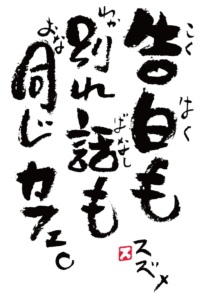 告白も
こく
はく
別れ話も
わか
ばなし
同じカフェ。
おな
スズメ
ス